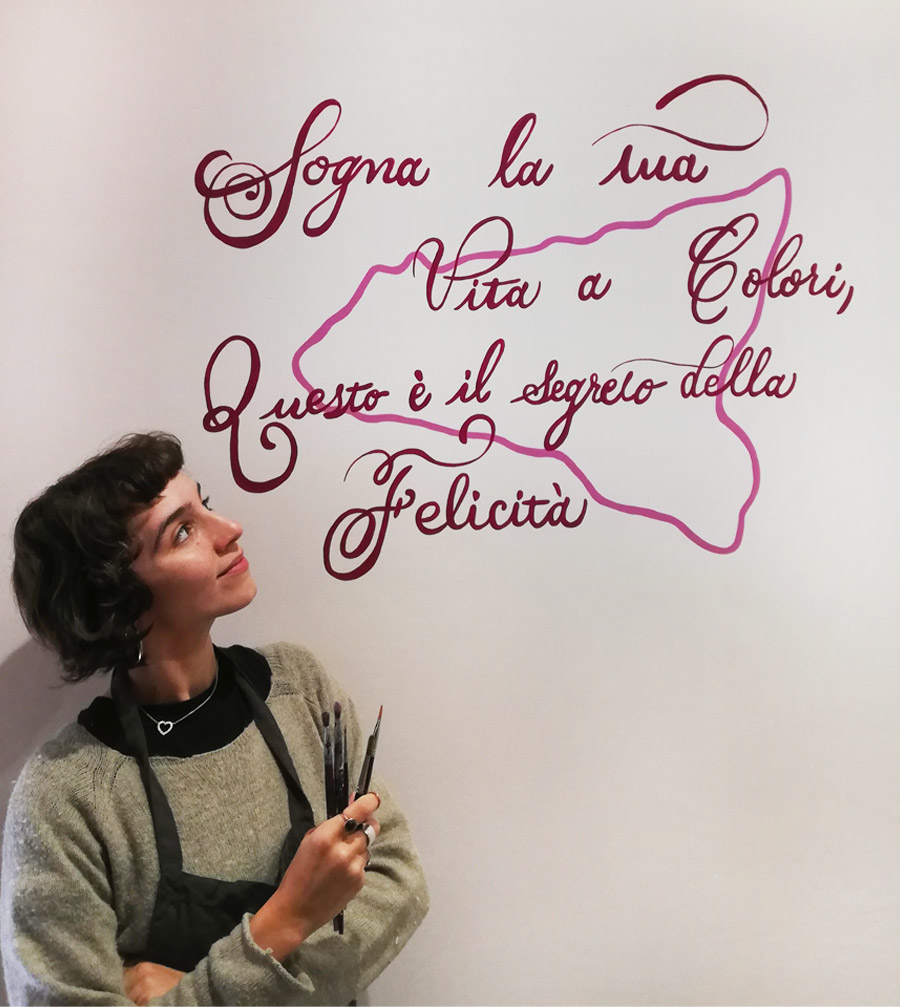 Sogna la tua
Vita a Colori,
Questo è il segreto della
Felicità